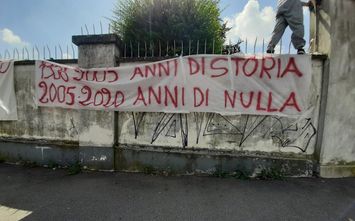 1908 2005 ANNI DI STORIA
2005 2020 ANNI DI NULLA